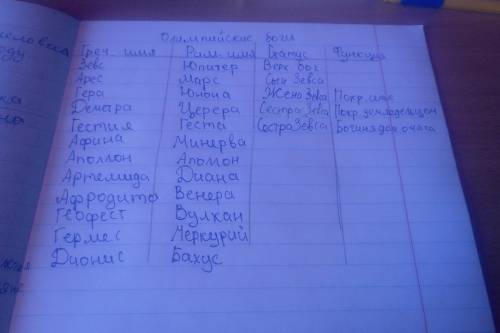 Олимпийские боги
Греч. имя Рим. имя Статус Функция
Зевс Юпитер Верх бог
Арес Марс Сын Зевса
Гера Юнона Жена Зевса Покр.
Демара Церера Сестра Зевса Покр. земледельцом
Гестия Геста Состра Зевса Богиня дом очага
Афина Минерва
Аполлон Апомон
Артемида Диана
Афродита Венера
Гефест Вулкан
Гермес Меркурий
Дионис Бахус